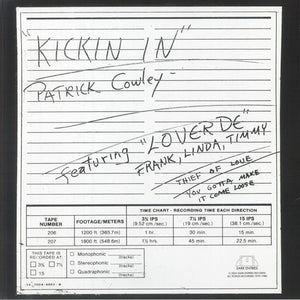 "KICKIN IN"
PATRICK COWLEY -
featuring "LOVERDE"
FRANK, LINDA, TIMMY
THIEF OF LOVE
YOU GOTTA MAKE
IT COME LOOSE
TIME CHART - RECORDING TIME EACH DIRECTION
TAPE NUMBER FOOTAGE/METERS 3¾ IPS (9.52 cm/sec.) 7½ IPS (19 cm/sec.) 15 IPS (38.1 cm/sec.)
206 1200 ft. (365.7m) 1 hr. 30 min. 15 min.
207 1800 ft. (548.6m) 1½ hrs. 45 min. 22.5 min.
THIS TAPE IS RECORDED AT:
3¾ 7½
15
Monophonic (tracks)
Stereophonic (tracks)
Quadraphonic (tracks)
DARK ENTRIES